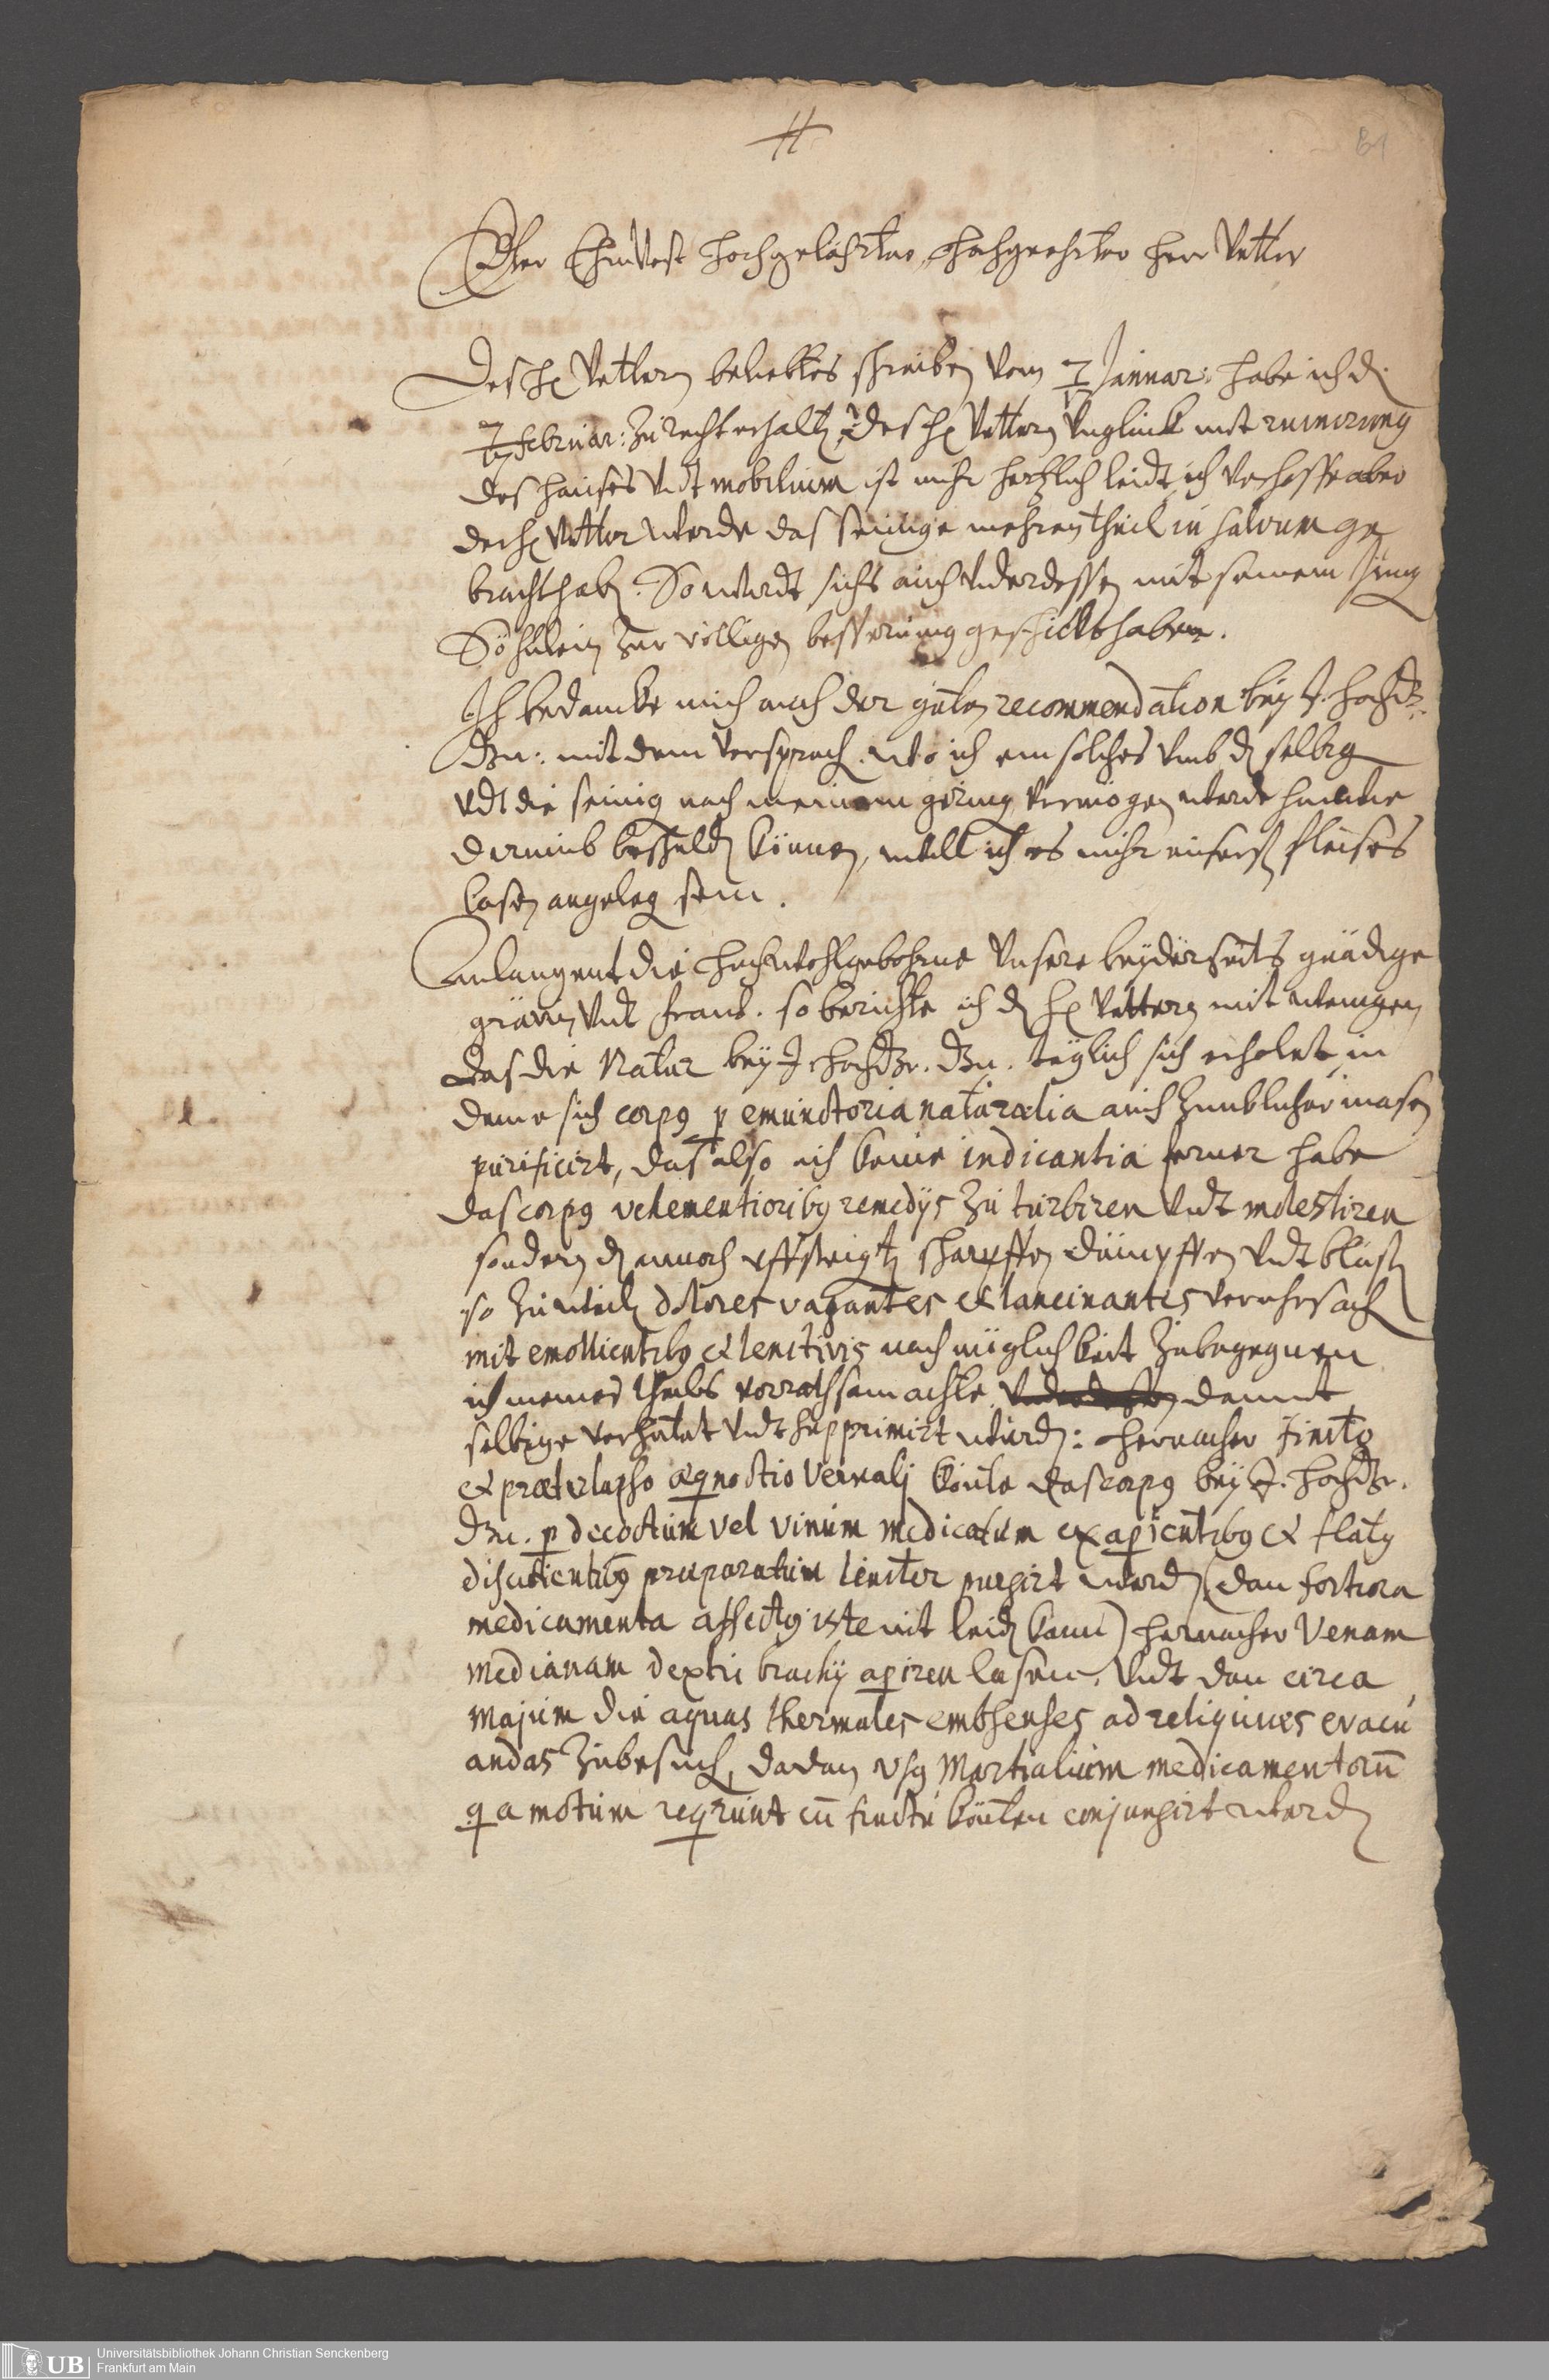 H
81
Edler Ehrnvest Hochgelährter, Hochgeehrter Herr Vetter
Des H Vettern beliebtes schreiben vom 7/17 Januar: habe ich d.
7/17 Februar: zu recht erhalt, des H Vettern Unglück mit ruinirung
des hauses Vndt mobilium ist mihr hertzlich leidt, ich verhoffe aber
der H Vetter werde das seinige mehrentheil in salvum ge
bracht hab. So wirdt sichs auch Vnderdessen mit seinem Jung
Söhnlein zur völligen besserung geschickt haben.
Ich bedancke mich auch der guten recommendation bey I. Hochgr.
Gn: mit dem Versprech. wo ich ein solches Vmb d selbig
Vdt die seinig nach meinem gering Vermögen werde hinwider
derumb beschuld können, will ich es mihr eusserst fleises
lasen angeleg sein.
Anlangent die Hochwohlgebohrne Vnsere beyderseits gnädige
gräven Vndt frauw. so berichte ich d H Vettern mit wenigen
das die Natur bey I. Hochgr. Gn. täglich sich erholet, in
deme sich corpus p emunctoria naturalia auch zimblicher masen
purificirt, das also ich keine indicantia ferner habe
das corpus vehementioribus remedijs zu turbiren Vndt molestiren
sondern d annoch uffsteigt scharpffen dämpffen Vndt bläst
so zuweil dolores vagantes et lancinantes verursach
mit emollientibus et lenitivis nach müglichkeit zubegegnen
ich meines theils vorrathsam achte, damit
selbige verhütet Vndt supprimirt würd: hernacher finito
et præterlapso æqnoctio Vernali könte das corpus bey I. Hochgr.
Gn. p decoctum vel vinum medicatum ex apientibus et flatus
discutientibus præparatum leniter purgirt werd (dan fortiora
medicamenta affectus iste nit leid kann) hernacher Venam
medianam dextri brachij apiren lasen, Vndt dan circa
Majum die aquas thermales embsenses ad reliquias evacu
andas zubesuch, da dan usus Martialium medicamentorū
q a motum reqrunt cū fructu könten conjungirt werd
Universitätsbibliothek Johann Christian Senckenberg
Frankfurt am Main
UB